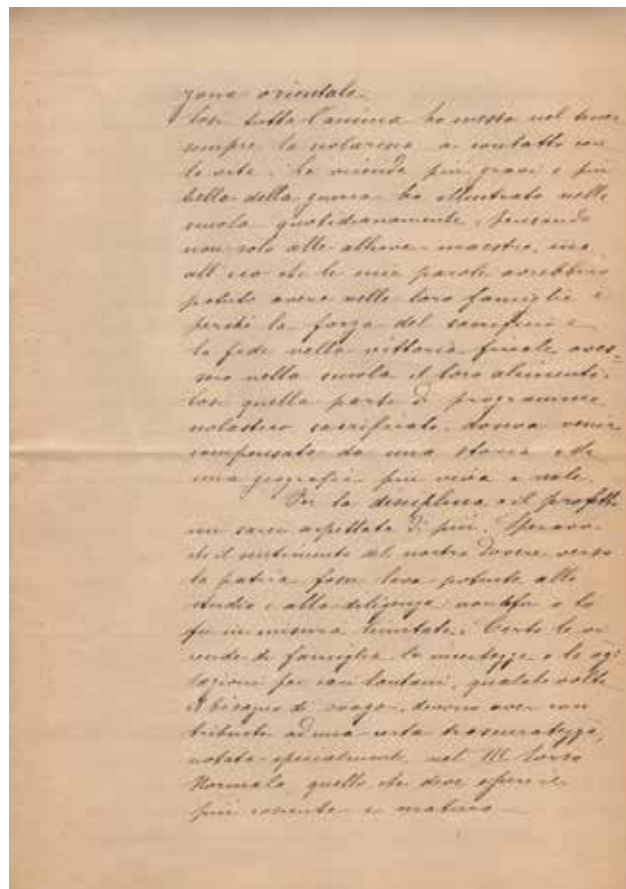 zona orientale.
Così tutta l'anima ho messo nel tener
sempre la scolaresca a contatto con
la vita. Le vicende più gravi e più
belle della guerra ho illustrato nella
scuola quotidianamente, pensando
non solo alle allieve maestre, ma
all'eco che le mie parole avrebbero
potuto avere nelle loro famiglie e
perchè la forza del sacrificio e
la fede nella vittoria finale aves-
sero nella scuola il loro alimento.
Così quella parte di programma
scolastico sacrificato, doveva venir
compensato da una storia e da
una geografia più viva e
Per la disciplina e il profitto
mi sarei aspettata di più. Speravo
che il sentimento del nostro dovere verso
la patria fosse leva potente allo
studio e alla diligenza: non fu o lo
fu in misura limitata. Certo le vi
cende di famiglia, le incertezze e le agi
tazioni per cari lontani, qualche volta
il bisogno di svago, devono aver con
tribuito ad una certa trascuratezza,
notata specialmente nel III Corso
Normale quello che deve essere il
più cosciente e maturo